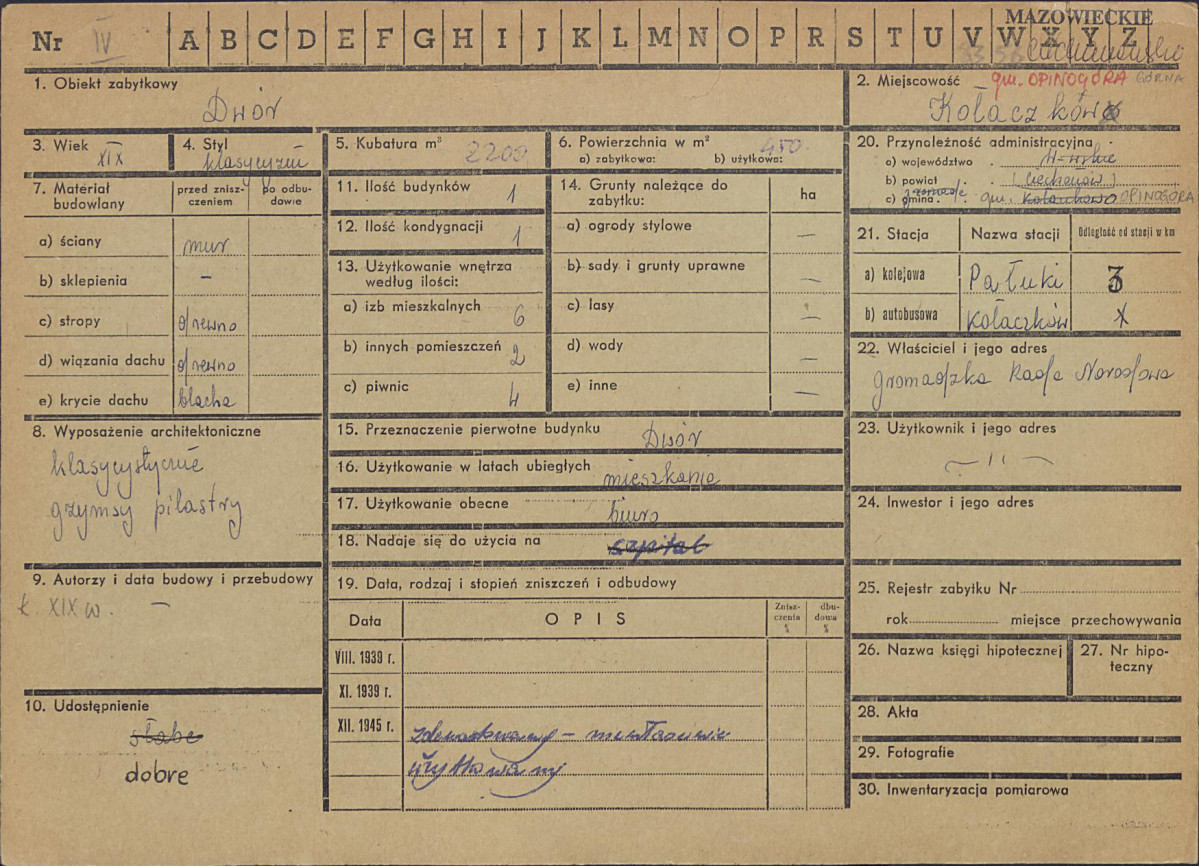 MAZOWIECKIE
Nr IV A B C D E F G H I J K L M N O P R S T U V W X Y Z
1. Obiekt zabytkowy
Dwór
2. Miejscowość gm. OPINOGÓRA GÓRNA
Kołaczków
3. Wiek
XIX
4. Styl
klasycyzm
5. Kubatura m³ 2200
6. Powierzchnia w m² 450
a) zabytkowa: b) użytkowa:
20. Przynoleżność administracyjna
a) województwo W-wskie
b) powiat (Ciechanów)
c) gmina gromada gm. OPINOGÓRA
7. Materiał budowlany
przed zniszczeniem
po odbudowie
a) ściany mur
b) sklepienia –
c) stropy drewno
d) wiązania dachu drewno
e) krycie dachu blacha
11. Ilość budynków 1
12. Ilość kondygnacji 1
13. Użytkowanie wnętrza
według ilości:
a) izb mieszkalnych 6
b) innych pomieszczeń 2
c) piwnic 4
14. Grunty należące do
zabytku: ha
a) ogrody stylowe –
b) sady i grunty uprawne –
c) lasy –
d) wody –
e) inne –
21. Stacja Nazwa stacji Odległość od stacji w km
a) kolejowa Pałuki 3
b) autobusowa Kołaczków x
22. Właściciel i jego adres
gromadzka Rada Narodowa
8. Wyposażenie architektoniczne
klasycystyczne
gzymsy pilastry
15. Przeznaczenie pierwotne budynku Dwór
16. Użytkowanie w latach ubiegłych mieszkania
17. Użytkowanie obecne biuro
18. Nadaje się do użycia na szpital
23. Użytkownik i jego adres
– ıı –
24. Inwestor i jego adres
9. Autorzy i data budowy i przebudowy
k. XIX w. –
19. Data, rodzaj i stopień zniszczeń i odbudowy
Data OPIS Zniszczenia % dbudowa %
VIII. 1939 r.
XI. 1939 r.
XII. 1945 r. zdewastowany –
użytkowany
25. Rejestr zabytku Nr
rok miejsce przechowywania
26. Nazwa księgi hipotecznej
27. Nr hipoteczny
10. Udostępnienie
słabe
dobre
28. Akta
29. Fotografie
30. Inwentaryzacja pomiarowa